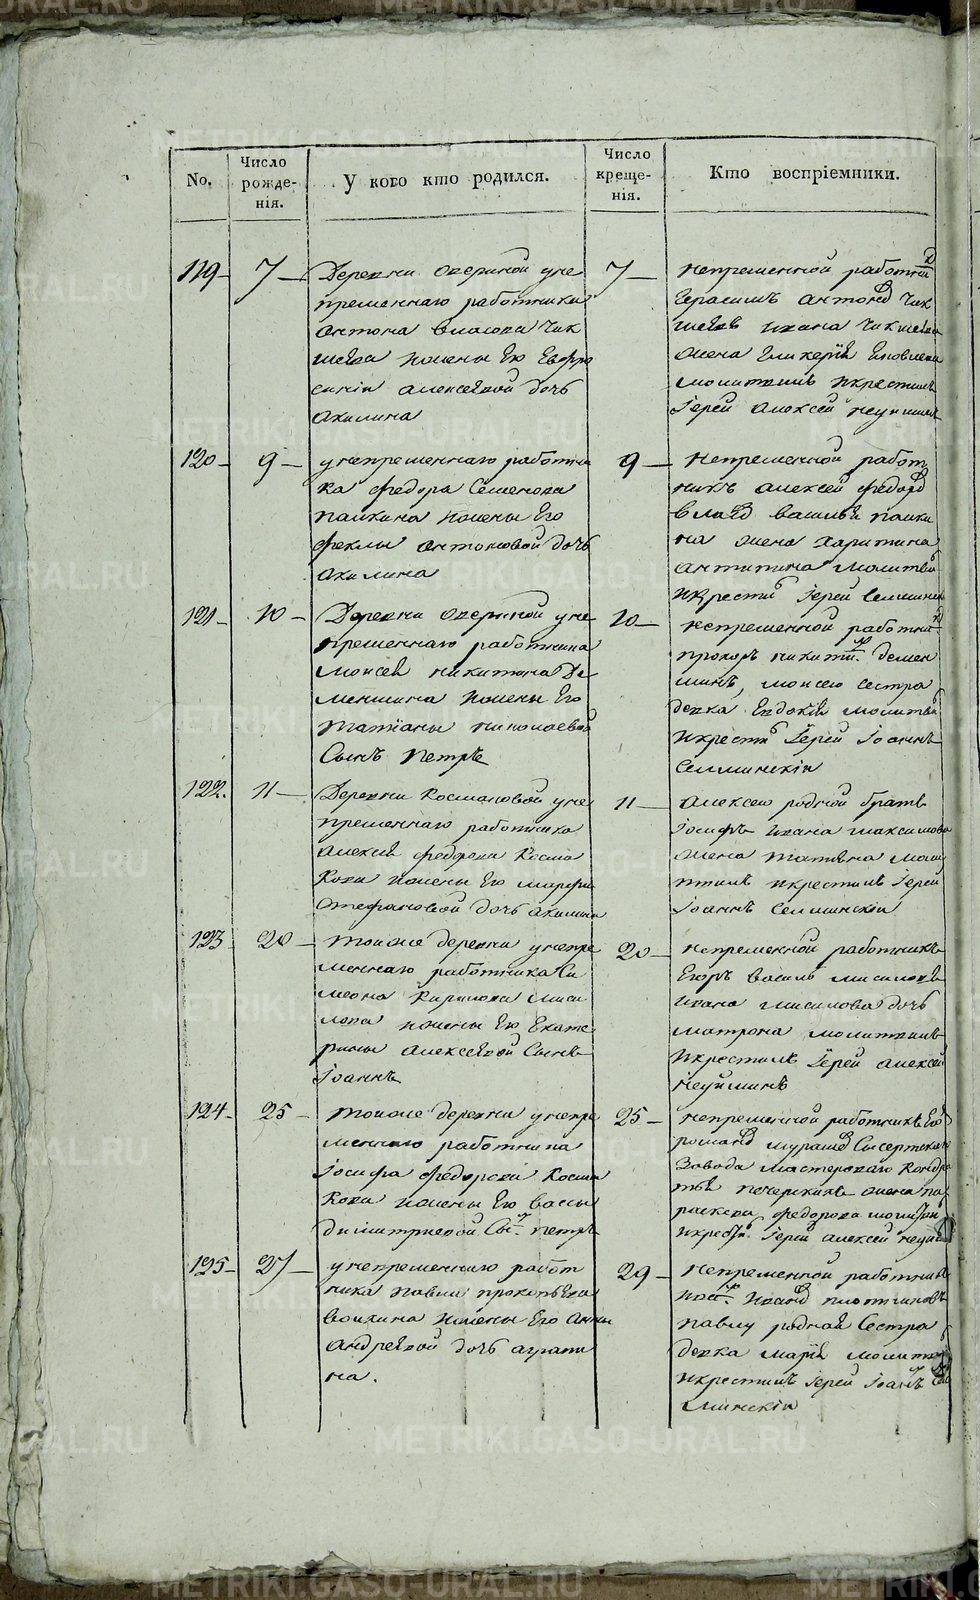 No.
Число рожде- нія.
У кого кто родился.
Число креще- нія.
Кто воспріемники.
119 - 7 -
Деревни Озериной у не
пременнаго работника
Антона Власова Чик
шева ижены Ею Евфро
синіи Алексеевой дочь
Акилина
7 -
непременной работни
Герасимъ Антонов Чик
шевъ Ивана Чикшева
жена Гликерія Яковлева
молитвилъ икрестилъ
Іерей Алексей Неуйминъ
120 - 9 -
у непременнаго работни
ка Федора Семенова
Палкина ижены Его
Феклы Антоновой дочь
Акилина
9 -
непременной работ
никъ Алексей Федоров
Василья Палки
на жена Харитина
Антипина молитви
икрести Іерей Селмински
121 - 10 -
Деревни Озериной у не
пременнаго работника
Моисея Никитина Де
меншина ижены Его
Татіаны Николаевой
Сынъ Петръ
10 -
непременной работни
Прохоръ Никити Демен
шинъ, Моисею сестра
девка Евдокія молитви
икрести Іерей Іоаннъ
Селминскіи
122. 11 -
Деревни Космаковой у не
пременнаго работника
Алексея Федорова Косма
кова ижены Ею Марфы
Стефановой дочь Акилина
11 -
Алексею родной братъ
Іосифъ Ивана Максимова
жена Татьяна моли
твилъ икрестилъ Іерей
Іоаннъ Селминскіи
123 - 20 -
Тойже деревни у непре
меннаго работника Си
меона Кирилова Миси
лова ижены Ею Екате
рины Алексеевой Сынъ
Іоаннъ
20 -
непременной работникъ
Егоръ Василь Мисиловъ
Ивана Мисилова дочь
Матрона молитвилъ
икрестилъ Іерей Алексей
Неуйминъ
124 - 25 -
Тойже деревни у непре
меннаго работника
Іосифа Федорова Косма
кова ижены Ею Вассы
Димитриевой Сы. Петръ
25 -
непременной работникъ
Сысертскаго
Завода мастероваго Кондра
тья Печеркинъ жена Па
раскева Федорова молитви
икрести. Іерей Алексей Неуй
125 - 27 -
у непременнаго работ
ника Павла Прокопьева
ижены Его Анны
Андреевой дочь Агрипи
на.
29 -
непременной работникъ
Иванов Плотниковъ
Павлу родная сестра
девка Марія молитв
икрестилъ Іерей Іоаннъ Се
лминскіи
METRIKI.GASO-URAL.RU